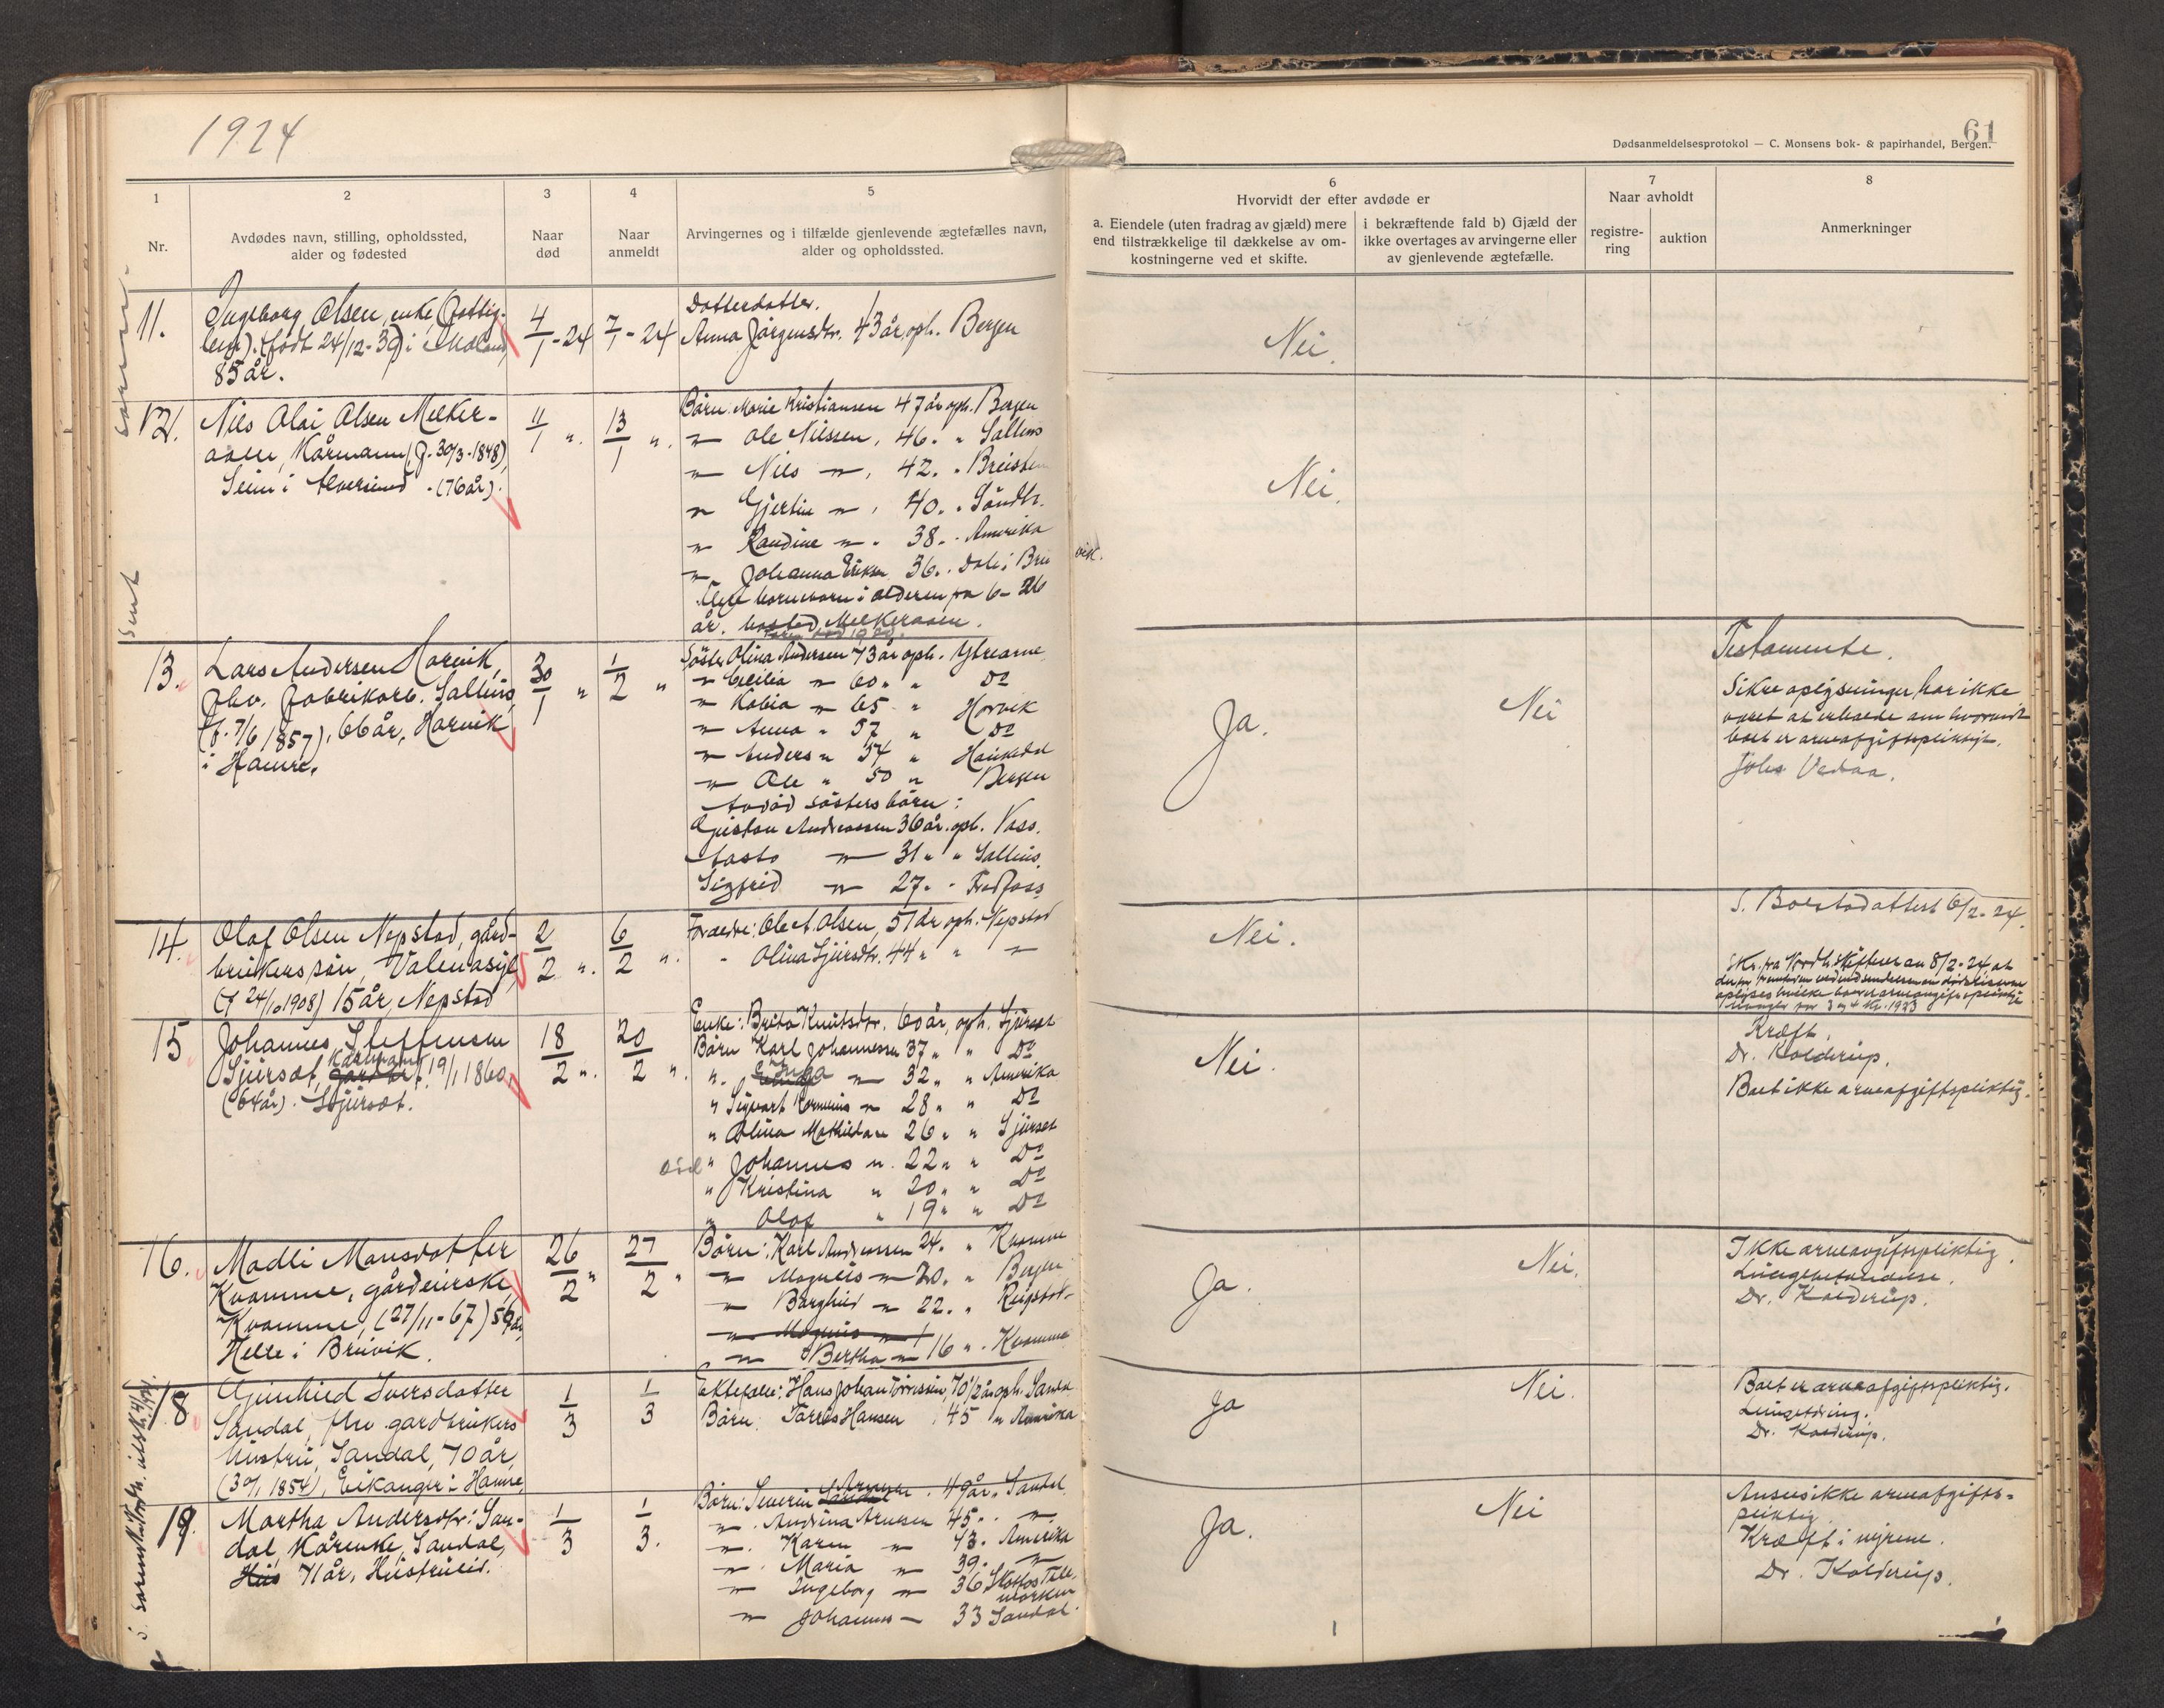 1924
61
Dødsanmeldelsesprotokol — C. Monsens bok- & papirhandel, Bergen.
1
Nr.
2
Avdødes navn, stilling, opholdssted,
alder og fødested
3
Naar
død
4
Naar
anmeldt
5
Arvingernes og i tilfælde gjenlevende ægtefælles navn,
alder og opholdssted.
6
Hvorvidt der efter avdøde er
a. Eiendele (uten fradrag av gjæld) mere
end tilstrækkelige til dækkelse av om-
kostningerne ved et skifte.
i bekræftende fald b) Gjæld der
ikke overtages av arvingerne eller
av gjenlevende ægtefælle.
7
Naar avholdt
registre-
ring
auktion
8
Anmerkninger
11.
Ingeborg Olsen, enke (fattig-
lem). (født 24/12-39) i
85 år.
4/1-24
7/1-24
Datterdatter.
Anna Jörgensdtr. 43 år oph. Bergen
Nei.
12.
Nils Olai Olsen Melker-
aasen, Kårmann (f. 30/3-1848),
Seim i Alversund. (76 år).
11/1 "
13/1 "
Börn: Marie Kristiansen 47 år oph. Bergen
" Ole Nilssen, 46. " Salhus
" Nils " , 42. " Breistein
" Gjertine " , 40. "
" Randine " . 38. " Amerika
" Johanna Eriksen 36. " Dale i Bruvik.
barnebarn i alderen fra 6-26
år. bosted Melkeraasen.
Nei.
13.
Lars Andersen Horvik,
fhv. fabrikarb. Salhus,
(f. 7/6 1857), 66 år, Horvik
i Hamre.
30/1 "
1/2 "
Söster Olina Andersen 73 år oph. Ytrearne
" Cecilia " 60 " " Do
" Kabia " 65 " Horvik
" Anna " 57 " Do
" Anders " 54 " Haukedal
" Ole " 50 " Bergen
Avdöd sösters börn:
Gjistou Andreassen 36 år. oph. Voss.
Aasta " 31 " " Salhus.
Sigfrid " 27. "
Ja.
Nei
Testamente.
Sikre oplysninger har ikke
været at erholde om hvorvidt
boet er arveafgiftspliktigt.
Johs Vedaa.
14.
Olaf Olsen Nepstad, gård-
brukers sön, Valenasjö,
(f 24/10 1908) 15 år, Nepstad
2/2 "
6/2 "
Foraldre: Ole A. Olsen, 51 år oph. Nepstad
" Olina Sjursdtr. 44 " " "
Nei.
S. Bostadattest 6/2-24.
15
Johannes Steffensen
Sjursæt, Kårmann f. 19/1 1860
(64 år). Sjursæt.
18/2 "
20/2 "
Enke: Brita Knutsdtr. 60 år, oph. Sjursæt
Börn Karl Johannessen 37 " " Do
" Inga " 32 " " Amerika
" Sigvart Kornelius " 28 " " Do
" Olina Mathilda " 26 " " Sjursæt
" Johannes " 22 " " Do
" Kristina " 20 " " Do
" Olaf " 19 " " Do
Nei.
Kræft.
Dr. Kolderup.
Boet ikke arveafgiftspliktig.
16.
Madli Monsdatter
Kvamme, gårdeierske,
Kvamme, (27/11-67) 56 år,
Helle i Bruvik.
26/2 "
27/2 "
Börn: Karl Andreassen 24. " Kvamme
" Magnus " 20. " Bergen
" Borghild " 22. "
" Magnus "
" Bertha " 16 " . Kvamme
Ja.
Nei.
Ikke arveavgiftspliktig.
Lungebetændelse.
Dr. Kolderup.
18
Gjimhild Iversdatter
Sandal, fhv gardbrukers
hustru, Sandal, 70 år,
(30/1 1854), Eikanger i Hamre,
1/3
1/3
Ektefælle: Hans Johan Törresen, 70 1/2 år oph. Sandal
Börn: Torres Hansen 45 " Amerika
Ja
Nei.
Boet er arveafgiftspliktig.
Dr. Kolderup.
19.
Martha Andersdtr. San-
dal, Kårenke, Sandal,
71 år,
1/3
1/3.
Börn: Severin Arnesen. 49 år " Sandal.
" Andrina Arnesen 45 " . "
" Karen " 43. Amerika
" Maria " 39. "
" Ingeborg " 36 Skotfos Tele-
marken
" Johannes " 33 Sandal.
Ja.
Nei
Ansees ikke arveafgifts-
pliktig.
Kræft i nyrene.
Dr. Kolderup.